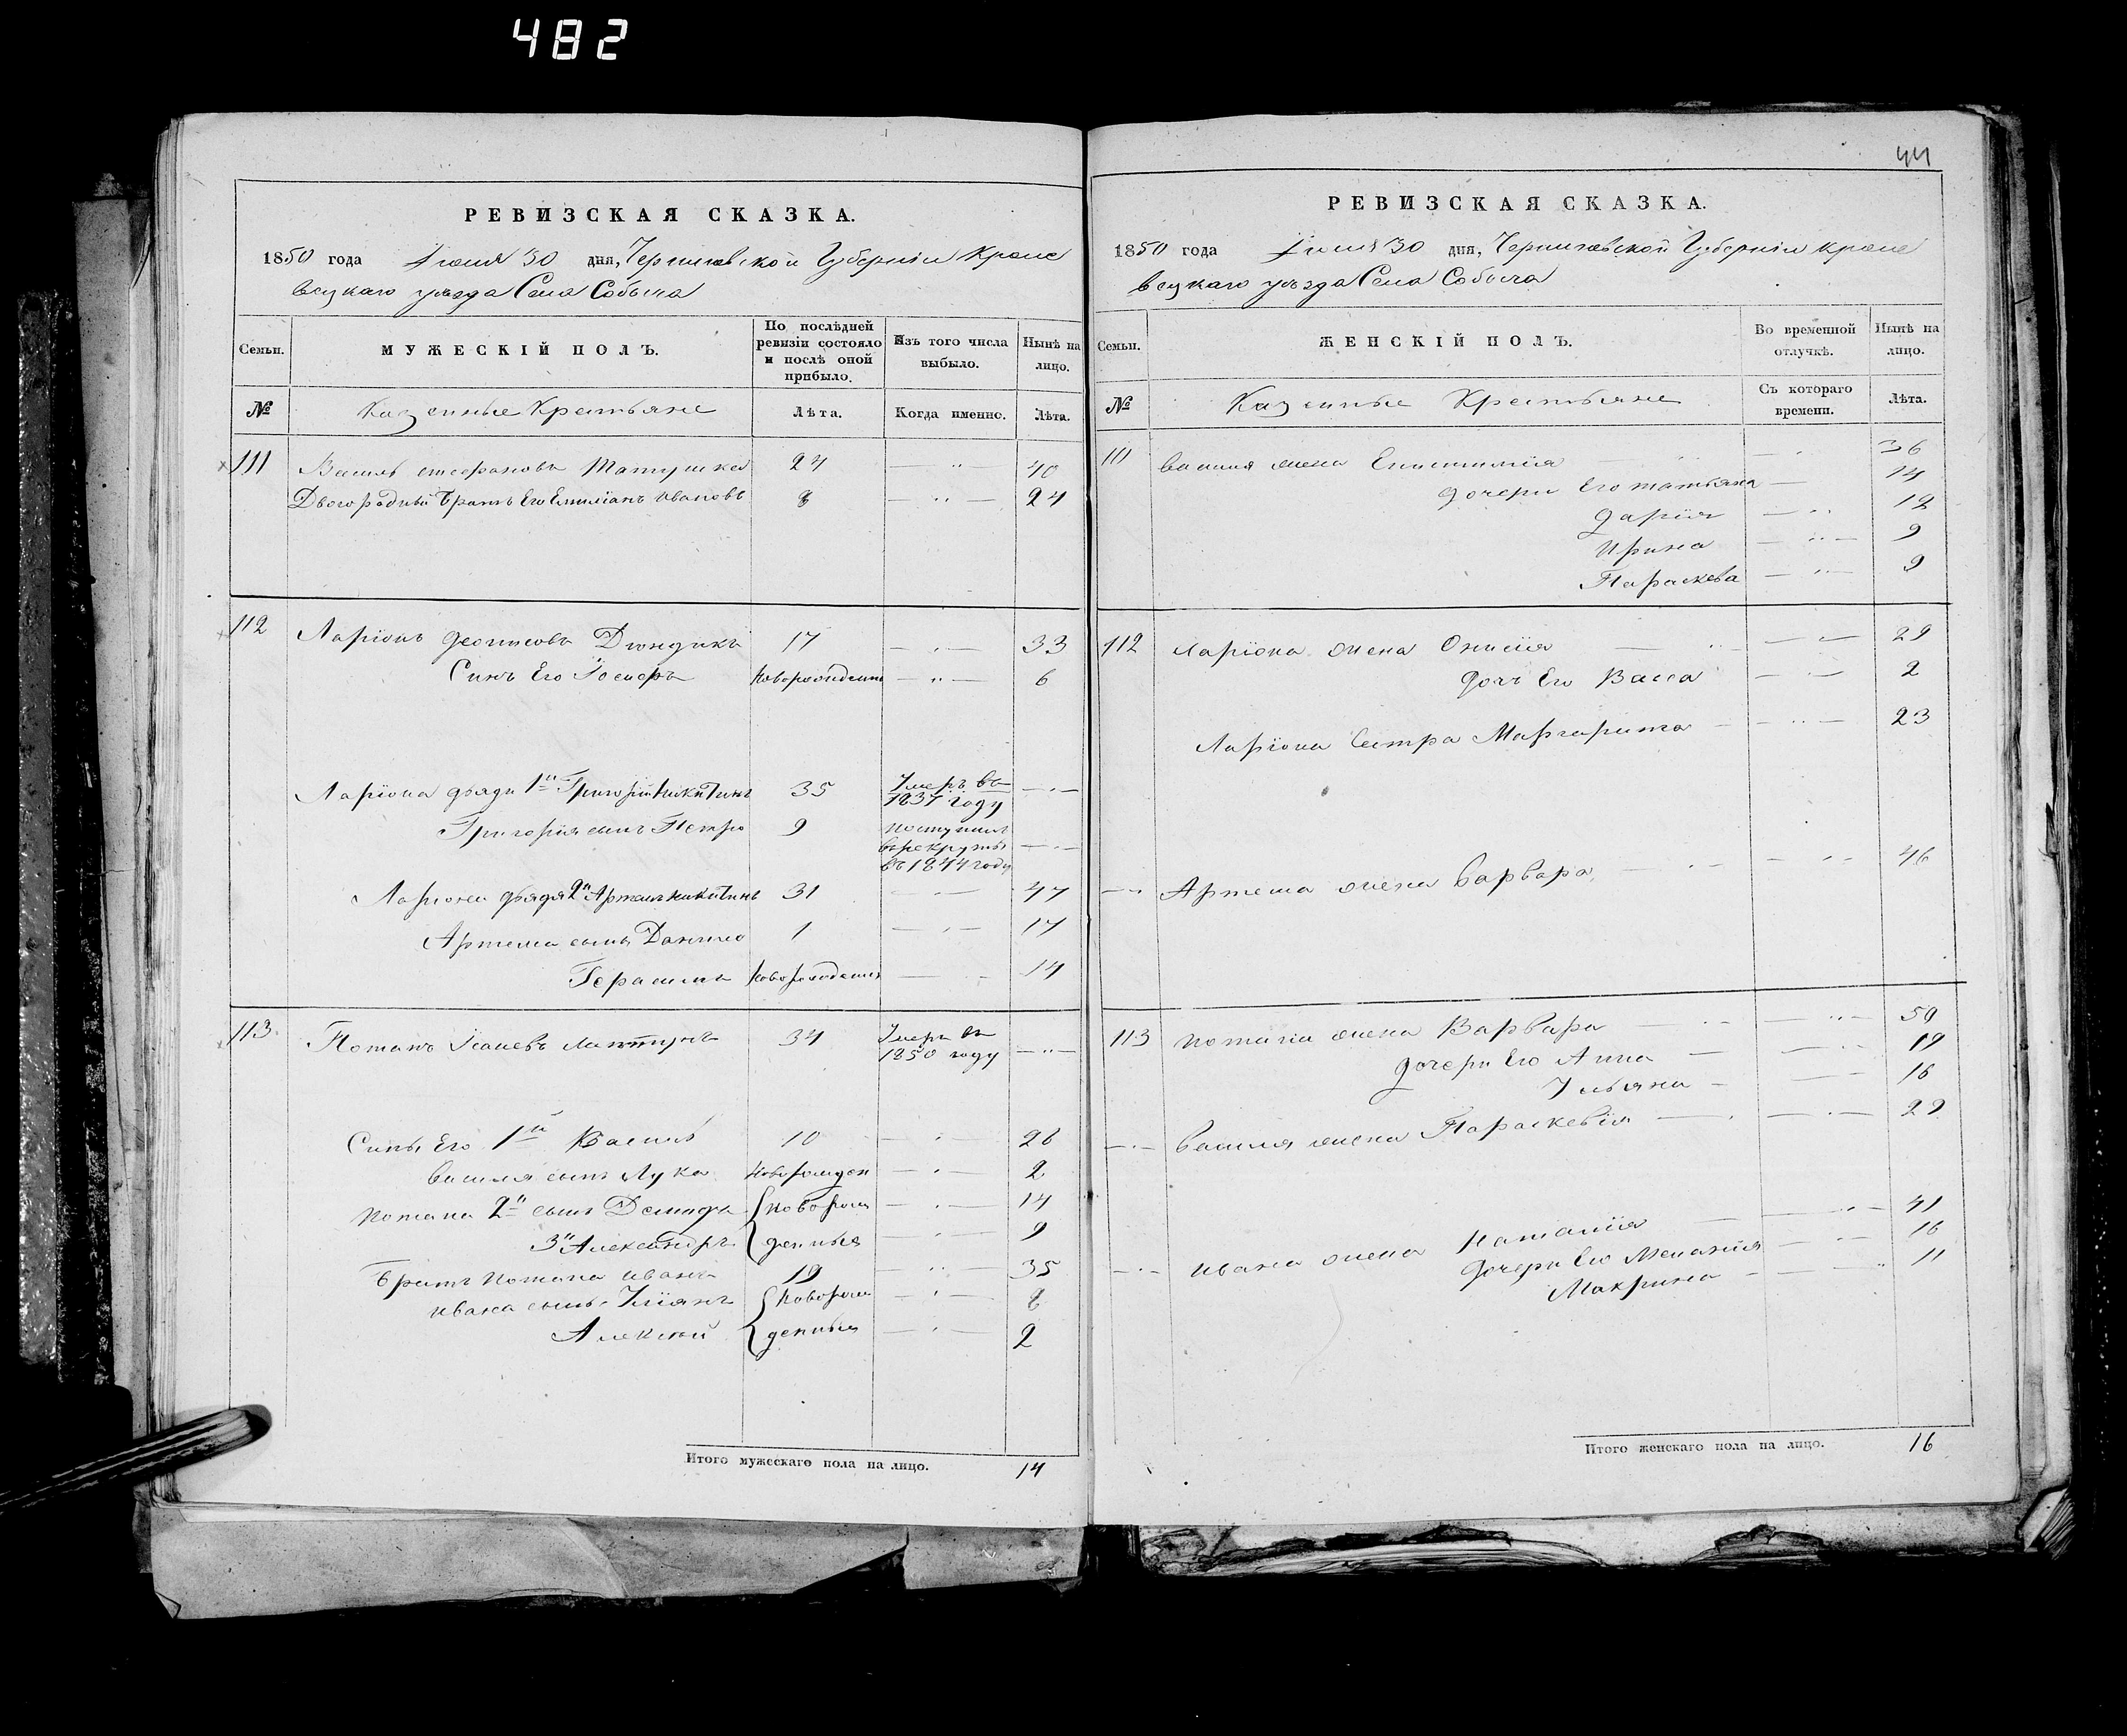 482
РЕВИЗСКАЯ СКАЗКА.
1850 года Июня 30 дня, Черниговской Губерніи Кроле
вецкаго уезда Села Собыча
Семьи.
МУЖЕСКІЙ ПОЛЪ.
По послѣдней ревизіи состояло и послѣ оной прибыло.
Изъ того числа выбыло.
Нынѣ на лицо.
№
Казенные Крестьяне
Лѣта.
Когда именно.
Лѣта.
111 Василь Стефановъ 24 40
Двоюродный Братъ Его Емиліанъ Ивановъ 8 24
112 Ларіонъ Денисовъ 17 33
Синъ Его Іосифъ Новорожденъ 6
Ларіона дядя 1й Григорій Никитинъ 35 Умеръ въ
1837 году
Григорія сынъ Петро 9 поступилъ
в рекруты
въ 1844 году
Ларіона дядя 2й Артемъ Никитинъ 31 47
Артема сынъ Данило 1 17
Герасимъ Новорожденъ 14
113 Потапъ 34 Умеръ въ
1850 году
Сины Его 1й Василь 10 26
Василя сынъ Лука Новорожден 2
Потапа 2й сынъ Демидъ Новорож 14
3й Александръ денныя 9
Братъ Потапа Иванъ 19 35
Ивана сынъ Новорож 8
Алексій денныя 2
Итого мужескаго пола на лицо. 14
44
РЕВИЗСКАЯ СКАЗКА.
1850 года Июня 30 дня, Черниговской Губерніи Кроле
вецкаго уезда Села Собыча
Семьи.
ЖЕНСКІЙ ПОЛЪ.
Во временной отлучкѣ.
Нынѣ на лицо.
№
Казенные Крестьяне
Съ котораго времени.
Лѣта.
111 Василя жена 36
дочери Его Татьяна 14
Дарія 12
Ирина 9
Параскева 9
112 Ларіона жена Онисія 29
дочь Его Васса 2
Ларіона Сестра Маргарита 23
Артема жена Варвара 46
113 Потапа жена Варвара 59
дочери Его Анна 19
Ульяна 16
Василя жена Параскевія 29
Ивана жена Наталія 41
дочери Его Меланія 16
Макрина 11
Итого женскаго пола на лицо. 16